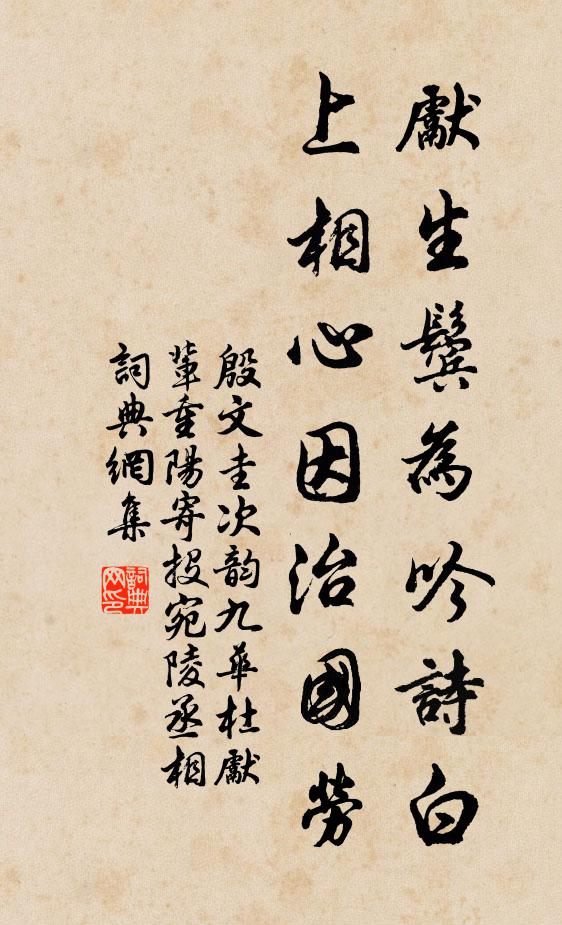 獻生鬢為吟詩白
上相心因治國勞
殷文圭次韵九華杜獻
輩重陽寄投宛陵丞相
詞典網集
詞典
网印